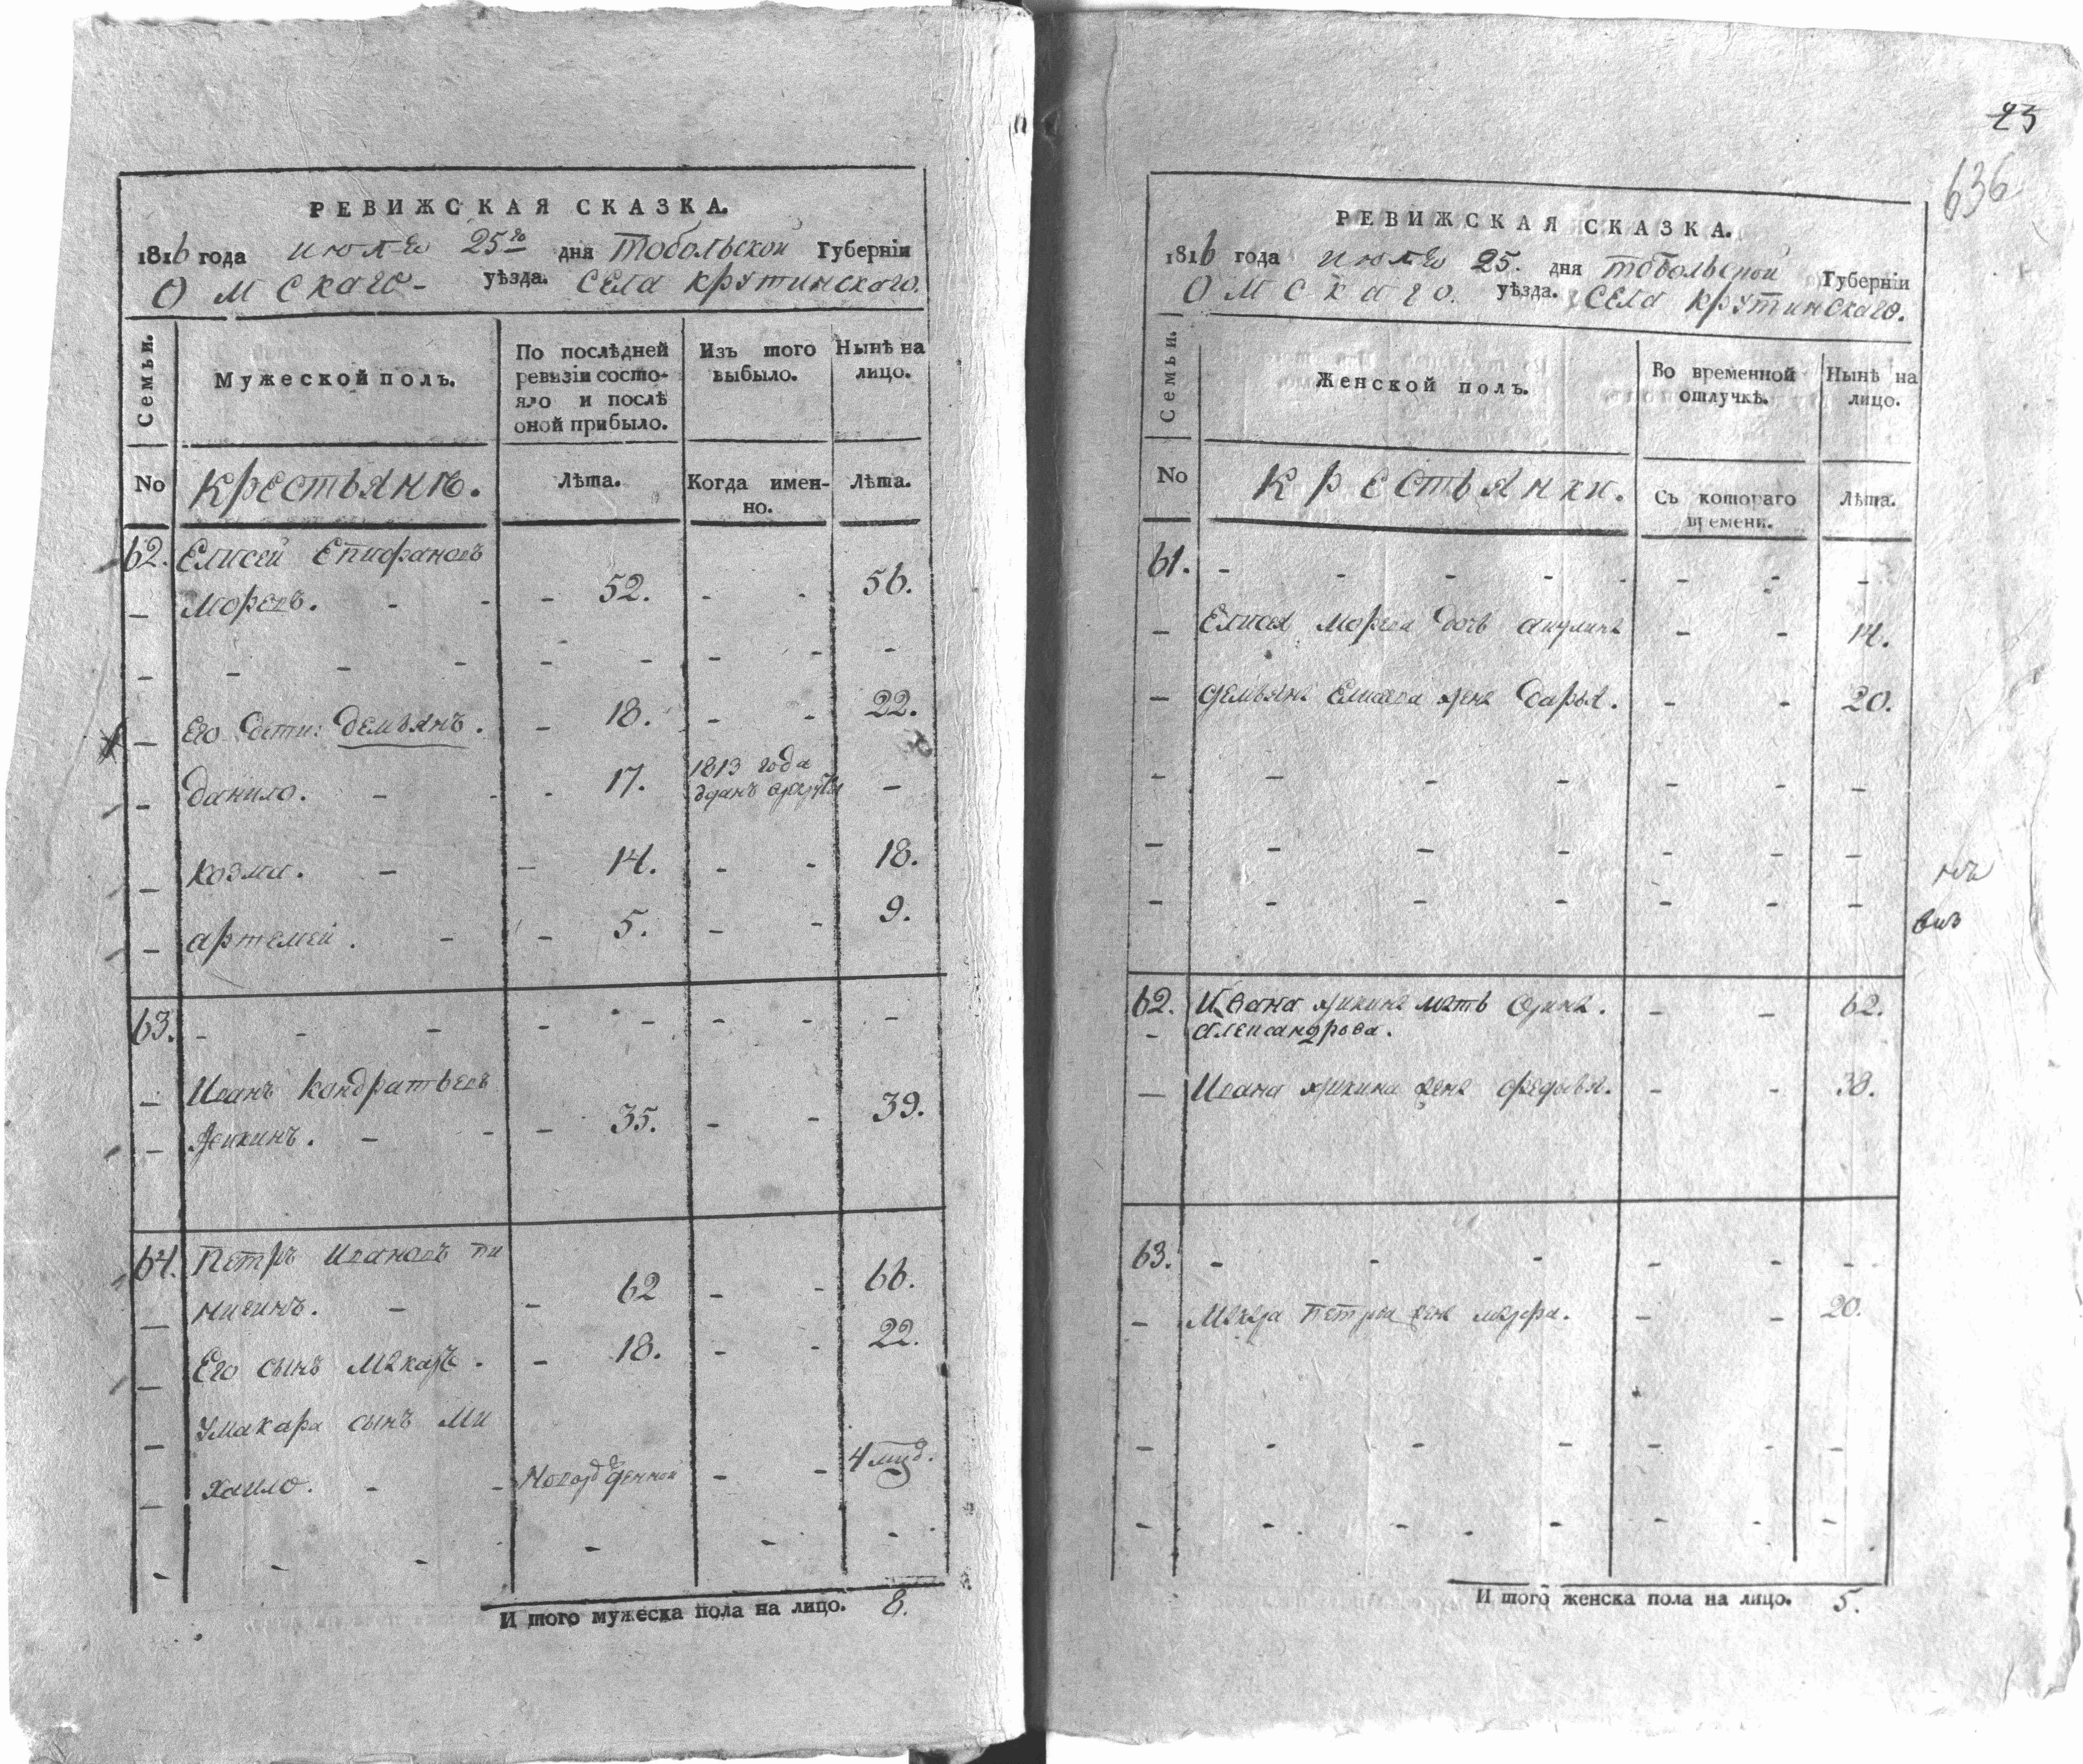 РЕВИЖСКАЯ СКАЗКА.
1816 года июля 25го дня Тобольской Губернїи
Омскаго уѣзда. Села Крутинскаго.
Семьи.
Мужеской полъ.
По послѣдней ревизїи состояло и послѣ оной прибыло.
Изъ того выбыло.
Нынѣ на лицо.
No
крестьянъ.
Лѣта.
Когда именно.
Лѣта.
62. Елисей Епифановъ
Моревъ. - - - 52. - - 56.
- - - - - - - - -
Его дети: демьянъ. - 18. - - 22.
данило. - - - 17. 1813 года
отданъ -
козма. - - 14. - - 18.
артемей. - - 5. - - 9.
63. - - - - - - - -
Иванъ Кондратьевъ
- - - 35. - - 39.
64. Петръ Ивановъ пи
нигинъ. - - 62 - - 66.
Его сынъ Макаръ. - 18. - - 22.
У макара сынъ Ми
хаило. - - Новорожденной - - 4 мид.
- - - - - -
И того мужеска пола на лицо. 8.
23
636
РЕВИЖСКАЯ СКАЗКА.
1816 года июля 25. дня Тобольской Губернїи
Омскаго. уѣзда. Села Крутинскаго.
Семьи.
Женской полъ.
Во временной отлучкѣ.
Нынѣ на лицо.
No
крестьянки.
Съ котораго времени.
Лѣта.
61. - - - - - - - -
- Елисея Морева дочь акулина - - 14.
- демьяна Елисеева жена дарья. - - 20.
- - - - - - -
- - - - - - -
- - - - - - -
62. Ивана мать - - 62.
- александрова.
- Ивана жена федосья. - - 38.
63. - - - - - -
- Макара Петрова жена марфа. - - 20.
- - - - - - -
- - - - - - -
И того женска пола на лицо. 5.